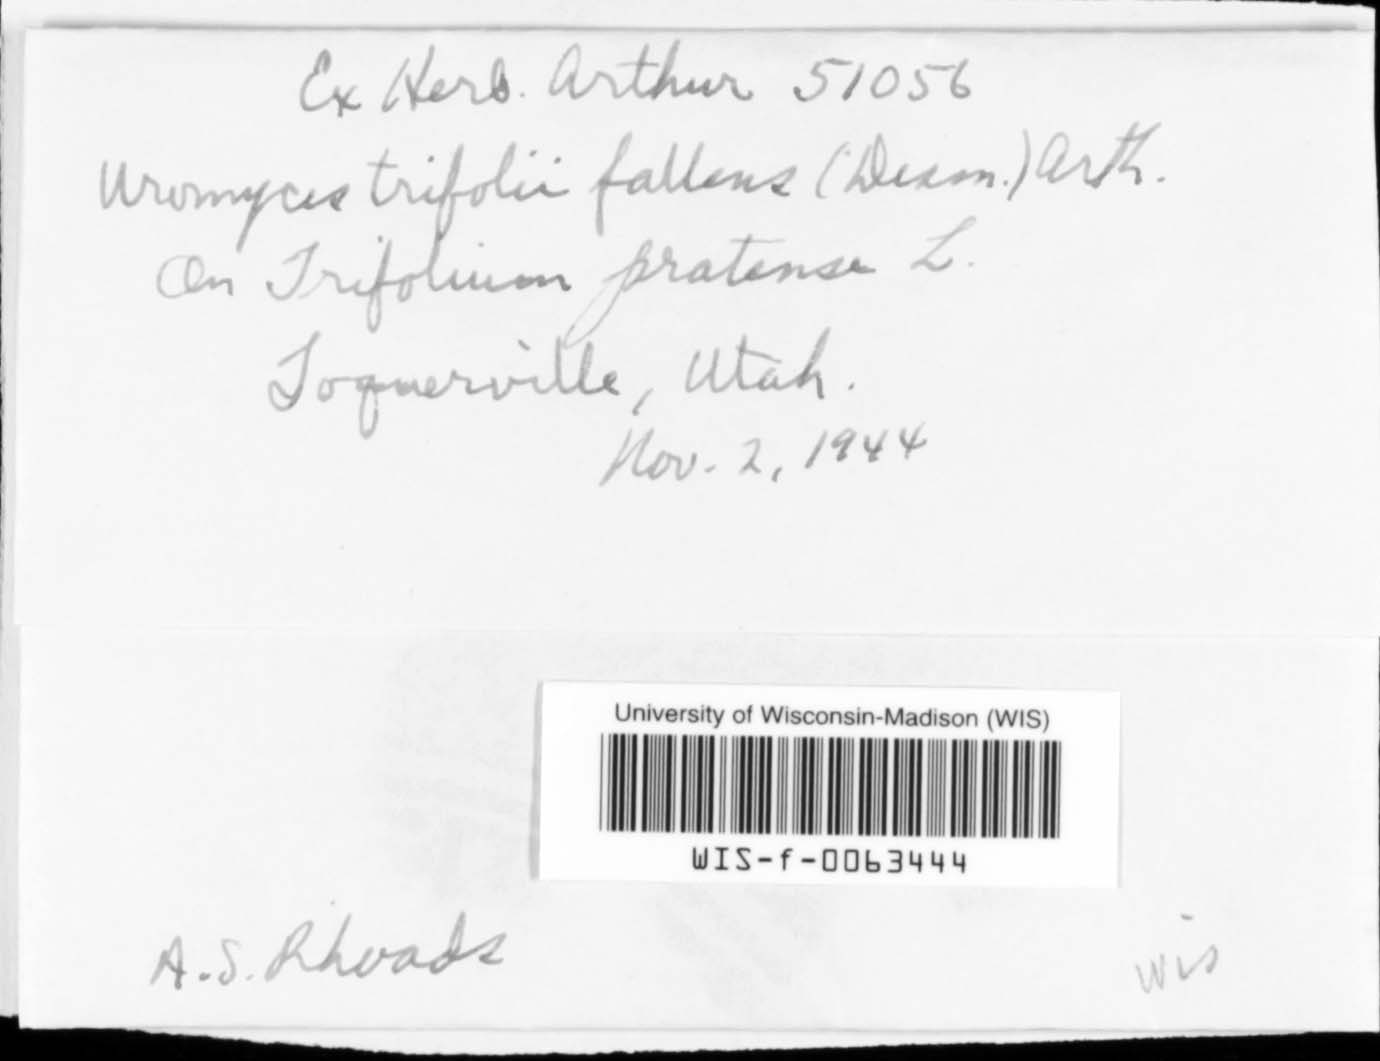 Ex Herb. Arthur 51056
Uromyces trifolii fallens (Desm.) Arth.
On Trifolium pratense L.
Toquerville, Utah.
Nov. 2, 1944
University of Wisconsin-Madison (WIS)
WIS-f-0063444
A.S. Rhoads
Wis